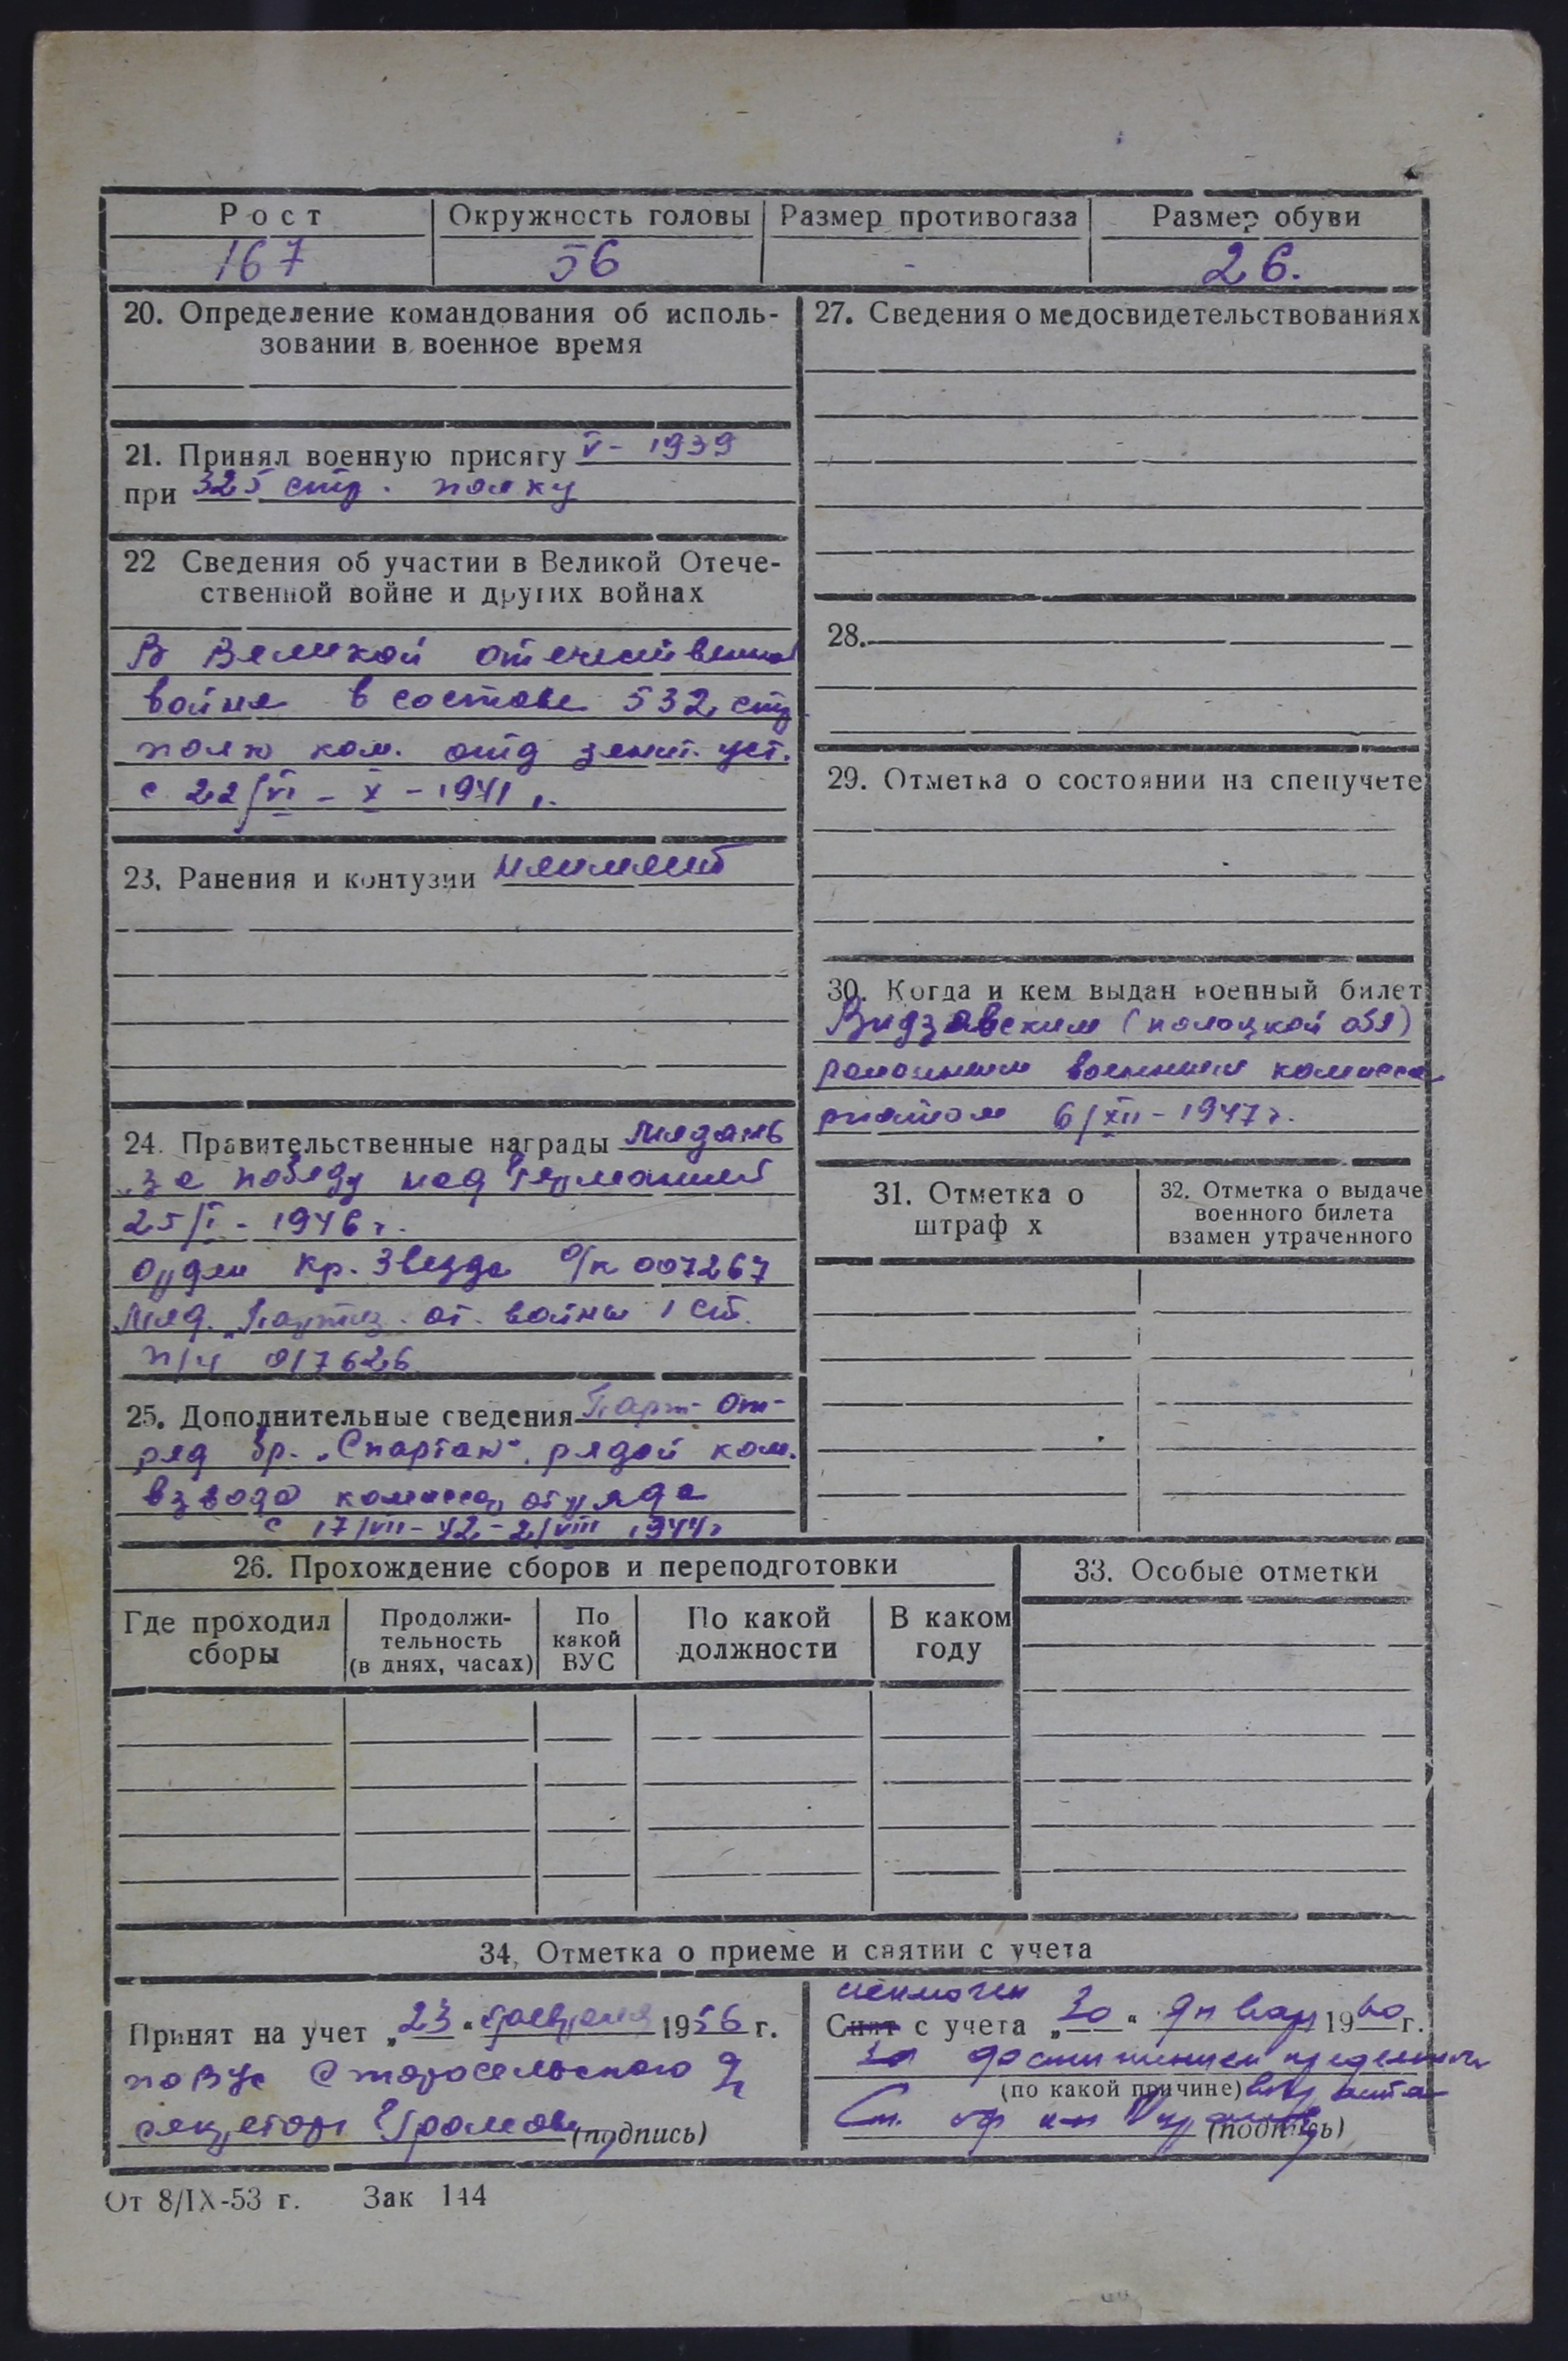 Рост Окружность головы Размер противогаза Размер обуви
167 56 - 26.
20. Определение командования об исполь-
зовании в военное время
21. Принял военную присягу V - 1939
при 325 стр. полку
22 Сведения об участии в Великой Отече-
ственной войне и других войнах
В Великой отечественной
войне в составе 532 стр
полк ком. отд зенит. уст.
с 22/VI - X - 1941 г.
23. Ранения и контузии неимеет
24. Правительственные награды Медаль
„за победу над Германией
25/I - 1946 г.
Орден Кр. Звезда о/к 007267
Мед. „Партиз. от. войны 1 ст.
п/ч 017626
25. Дополнительные сведения Парт- от-
ряд бр. „Спартак", рядой ком.
взвода комиссар отряда
с 17/VII - 42 - 2/VIII 1944г
26. Прохождение сборов и переподготовки
Где проходил
сборы
Продолжи-
тельность
(в днях, часах)
По
какой
ВУС
По какой
должности
В каком
году
27. Сведения о медосвидетельствованиях
28.
29. Отметка о состоянии на спецучете
30. Когда и кем выдан военный билет
Видзовским (полоцкой обл)
районным военным комисса
риатом 6/XII - 1947 г.
31. Отметка о
штраф х
32. Отметка о выдаче
военного билета
взамен утраченного
33. Особые отметки
34. Отметка о приеме и снятии с учета
Принят на учет „23" февраля 1956 г.
по ВУС Старосельского
секретарь Громов
(подпись)
исключен
Снят с учета „30" январ 1960 г.
За достижением предельного
(по какой причине) возраста
Ст. оф
(подпись)
От 8/IX-53 г. Зак 144